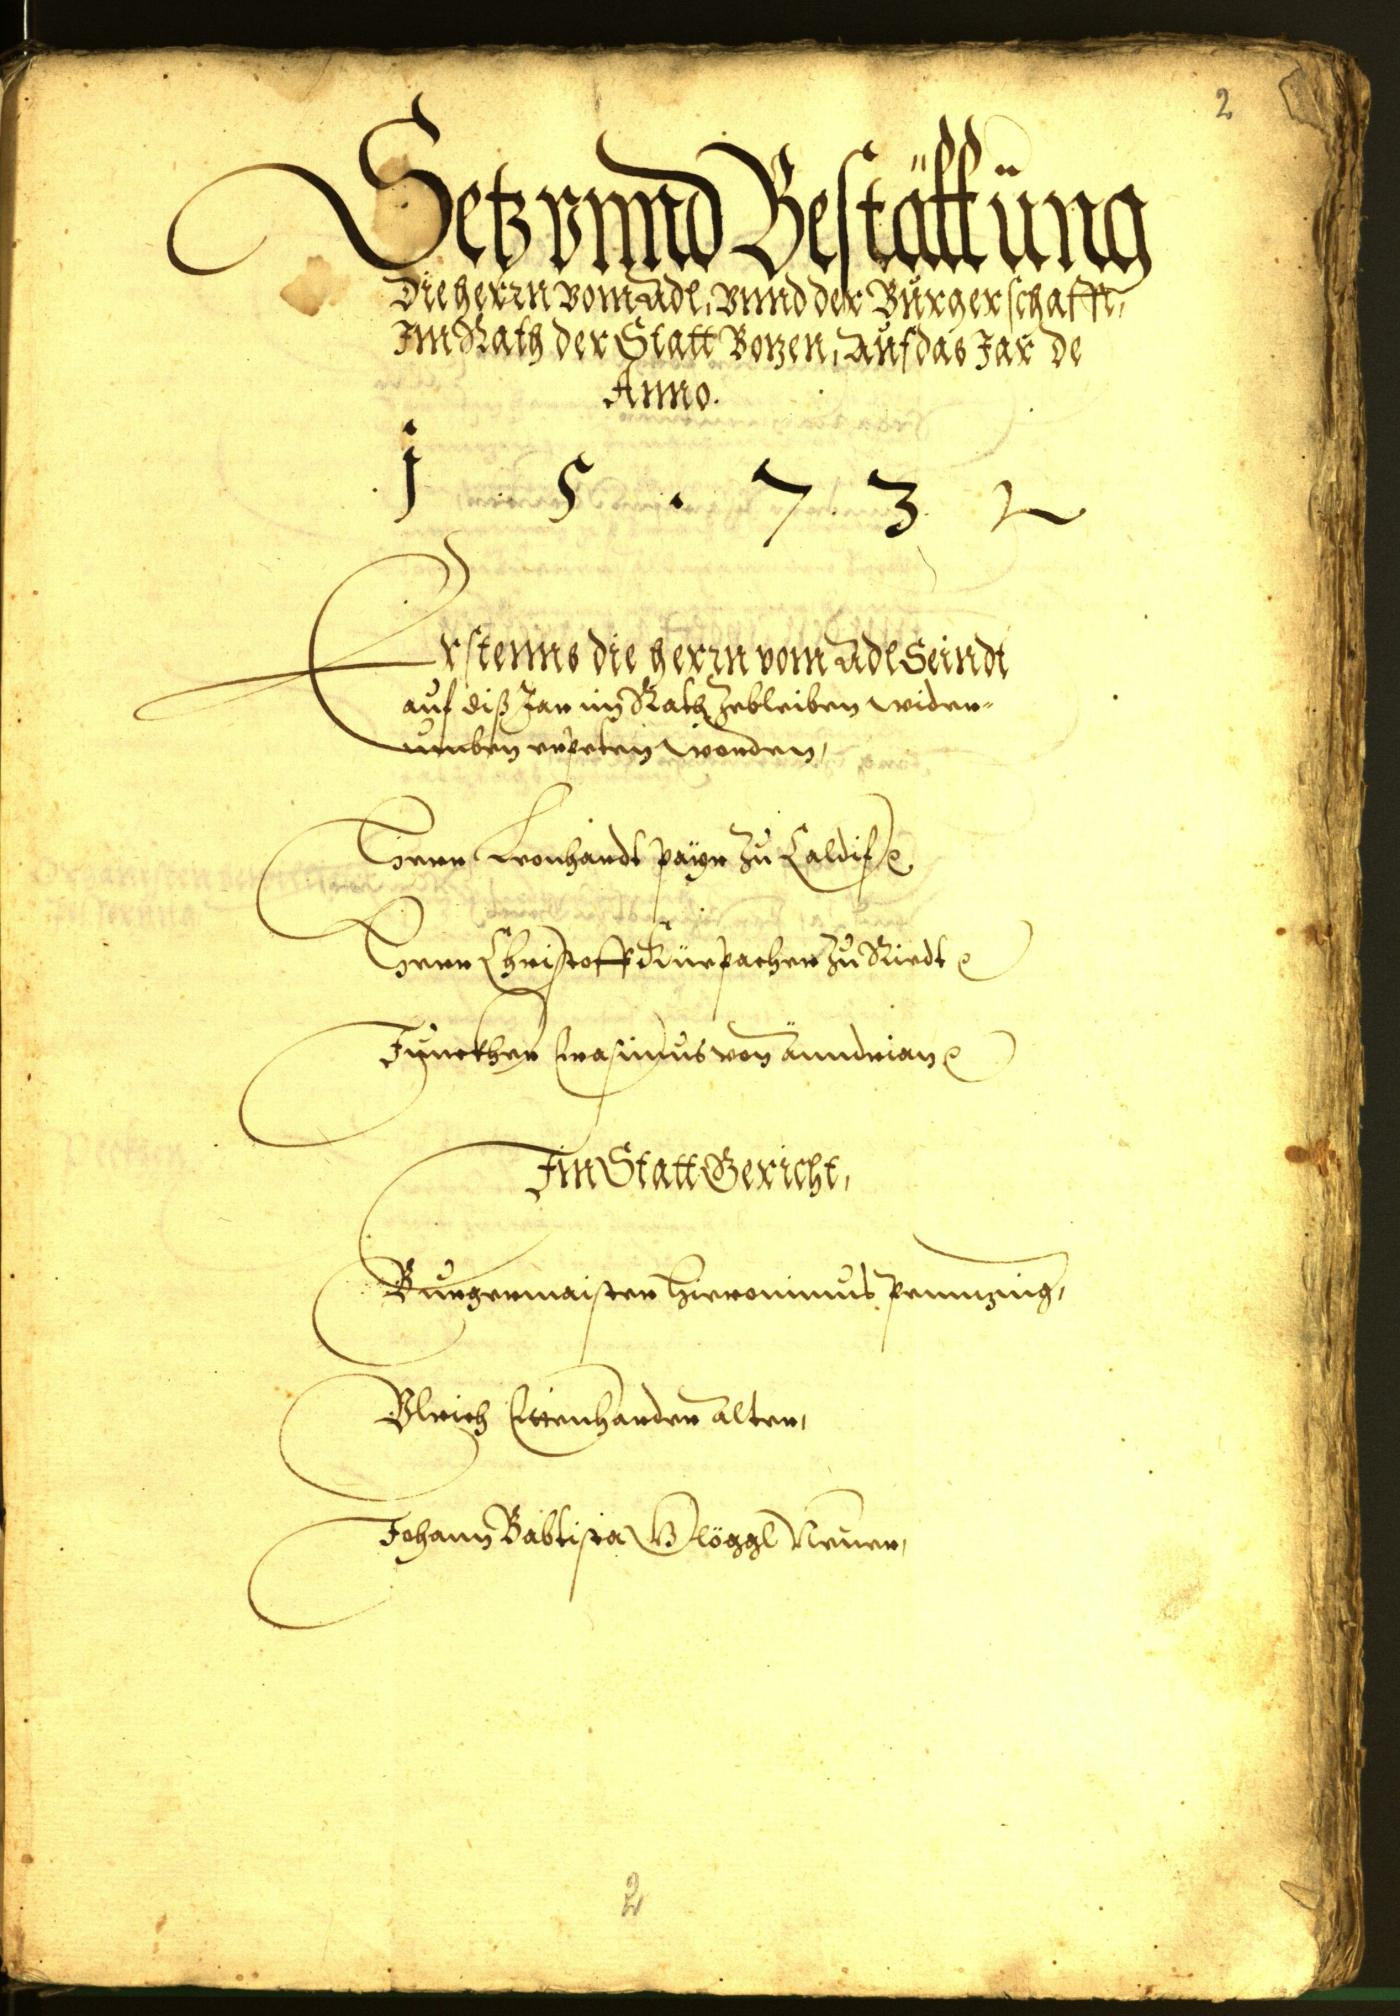 2
Setz vnnd Bestättung
Die herrn vom Adl, vnnd der Burgerschafft,
Im Rath der Statt Bozen, auf das Jar de
Anno.
1 5 . 7 3
Erstenns die herrn vom Adl Seindt
auf diß Jar im Rath zebleiben wider-
umben erpeten worden,
Herr Leonhardt payr zu Caldif
Herr Christoff Kürpacher zu Riedt
Junckher Erasimus von Änndrian
Im Statt Gericht,
Burgermaister Hieronimus pennzing,
Vlrich Ettenharder alter,
Johann Babtista Vlöggl Neuer,
2